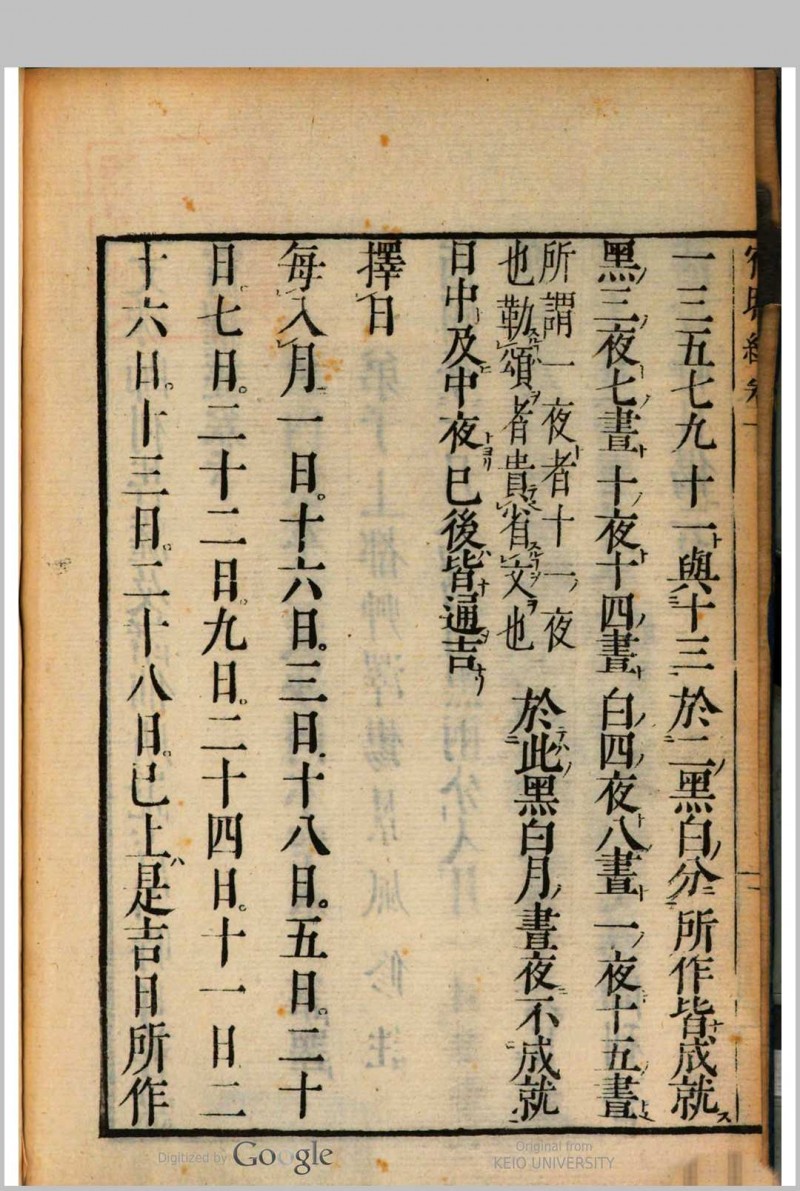 宿曜經卷
一三五七九 十一與十三 於二黑白分 所作皆成就
黑三夜七晝 十夜十四晝 白四夜八晝 一夜十五晝
所謂一夜者十一夜
也勒頌者貴省文也
於此黑白月 晝夜不成就
日中及中夜 已後皆通吉
擇日
每入月一日。十六日。三日。十八日。五日。二十
日。七日。二十二日。九日。二十四日。十一日二
十六日。十三日。二十八日。已上是吉日所作
Digitized by Google
Original from
KEIO UNIVERSITY